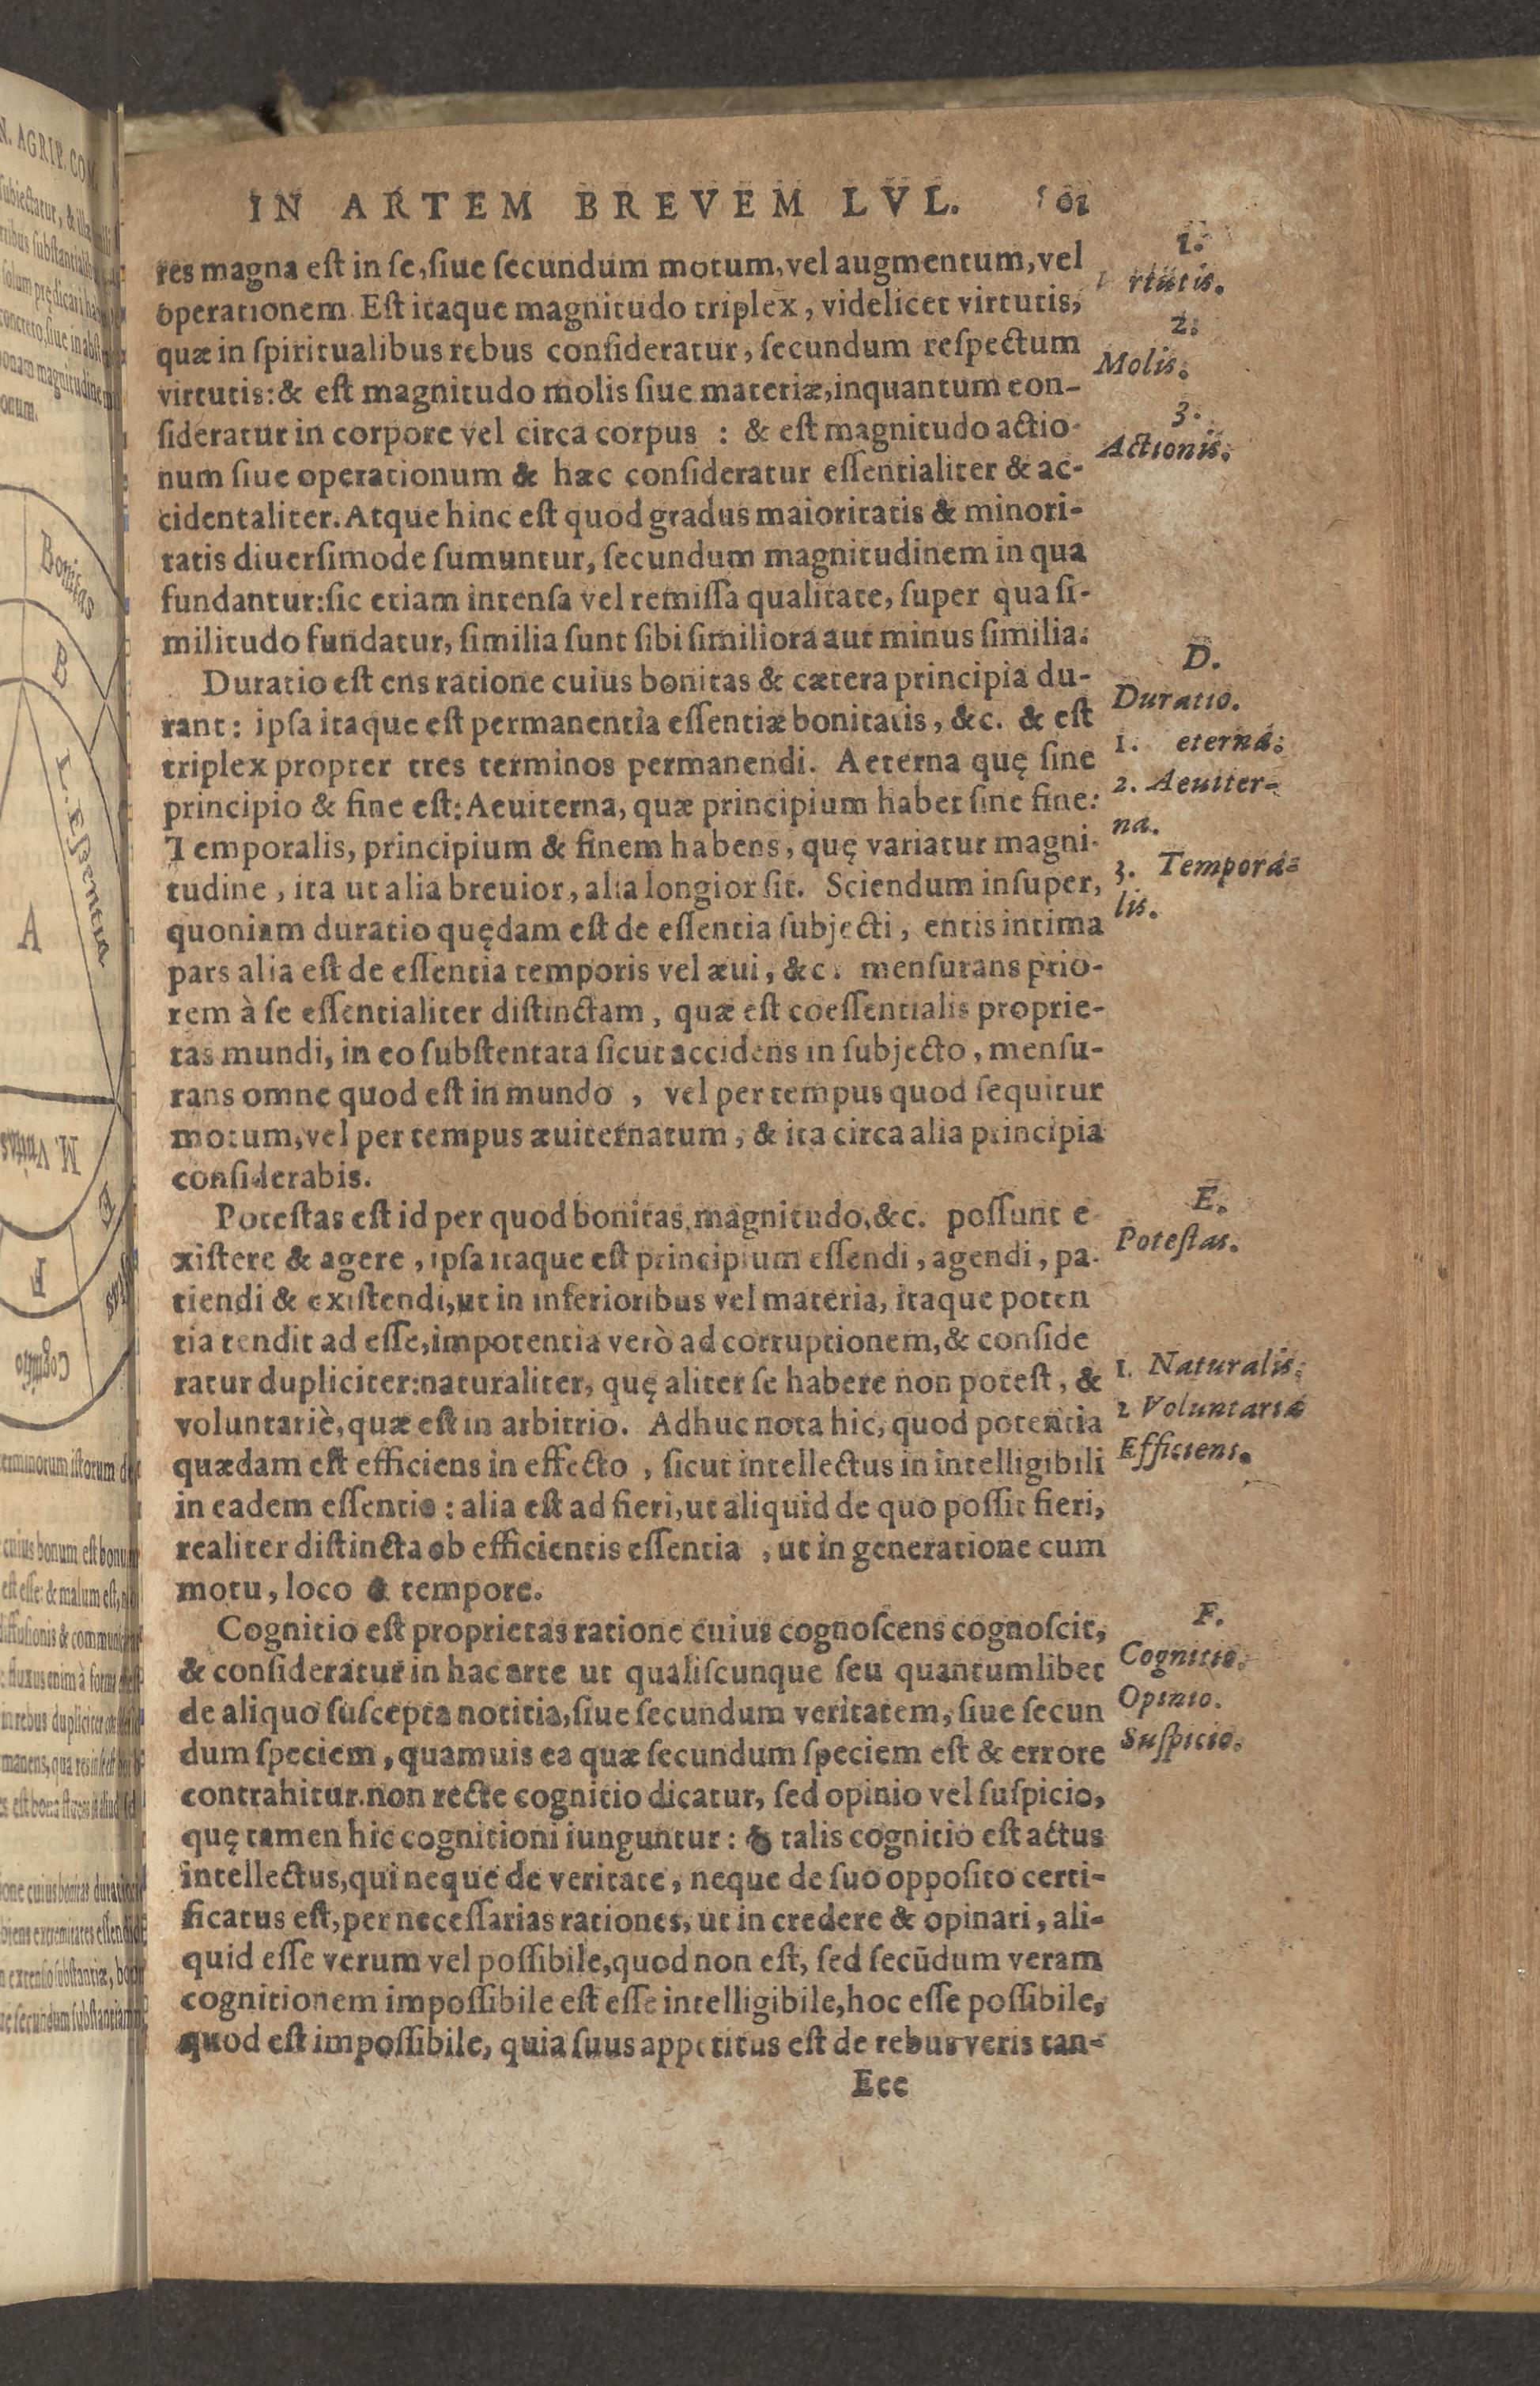 IN ARTEM BREVEM LVL.
res magna est in se, siue secundum motum, vel augmentum, vel
operationem. Est itaque magnitudo triplex, videlicet virtutis,
quæ in spiritualibus rebus consideratur, secundum respectum
virtutis: & est magnitudo molis siue materiæ, inquantum con-
sideratur in corpore vel circa corpus : & est magnitudo actio-
num siue operationum & hæc consideratur essentialiter & ac-
cidentaliter. Atque hinc est quod gradus maioritatis & minori-
tatis diuersimode sumuntur, secundum magnitudinem in qua
fundantur: sic etiam intensa vel remissa qualitate, super qua si-
militudo fundatur, similia sunt sibi similiora aut minus similia.
Duratio est ens ratione cuius bonitas & cætera principia du-
rant: ipsa itaque est permanentia essentiæ bonitatis, &c. & est
triplex propter tres terminos permanendi. Aeterna quę sine
principio & fine est: Aeuiterna, quæ principium habet sine fine:
Temporalis, principium & finem habens, quę variatur magni-
tudine, ita ut alia breuior, alia longior sit. Sciendum insuper,
quoniam duratio quędam est de essentia subjecti, entis intima
pars alia est de essentia temporis vel æui, &c. mensurans prio-
rem à se essentialiter distinctam, quæ est coessentialis proprie-
tas mundi, in eo substentata sicut accidens in subjecto, mensu-
rans omne quod est in mundo, vel per tempus quod sequitur
motum, vel per tempus æuiternatum, & ita circa alia principia
considerabis.
Potestas est id per quod bonitas, magnitudo, &c. possunt e-
xistere & agere, ipsa itaque est principium essendi, agendi, pa-
tiendi & existendi, ut in inferioribus vel materia, itaque poten
tia tendit ad esse, impotentia verò ad corruptionem, & conside
ratur dupliciter: naturaliter, quę aliter se habere non potest, &
voluntariè, quæ est in arbitrio. Adhuc nota hic, quod potentia
quædam est efficiens in effecto, sicut intellectus in intelligibili
in eadem essentia: alia est ad fieri, ut aliquid de quo possit fieri,
realiter distincta ob efficientis essentia, ut in generatione cum
motu, loco & tempore.
Cognitio est proprietas ratione cuius cognoscens cognoscit,
& consideratur in hac arte ut qualiscunque seu quantumlibet
de aliquo suscepta notitia, siue secundum veritatem, siue secun
dum speciem, quamuis ea quæ secundum speciem est & errore
contrahitur. non recte cognitio dicatur, sed opinio vel suspicio,
quę tamen hic cognitioni iunguntur: & talis cognitio est actus
intellectus, qui neque de veritate, neque de suo opposito certi-
ficatus est, per necessarias rationes, ut in credere & opinari, ali-
quid esse verum vel possibile, quod non est, sed secūdum veram
cognitionem impossibile est esse intelligibile, hoc esse possibile,
quod est impossibile, quia suus appetitus est de rebus veris tan-
Eee
1.
2.
Molis.
3.
Actionis.
D.
Duratio.
1. eterna.
2. Aeuiter-
na.
3. Tempora-
lis.
E.
Potestas.
1. Naturalis.
2 Voluntaria
Efficiens.
F.
Cognitio.
Opinio.
Suspicio.
Bonitas
B
L. Essentia
A
M. Vnitas
F
Cognitio